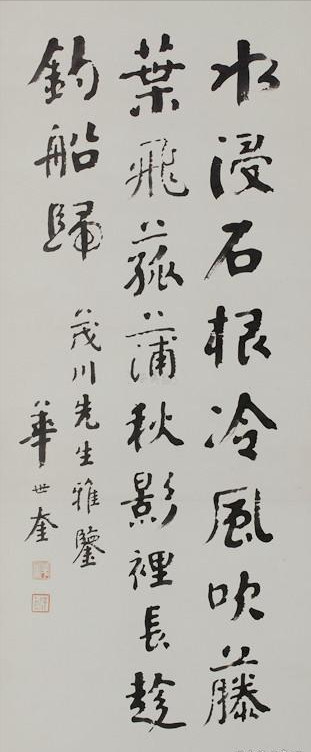 水浸石根冷風吹藤
葉飛菰蒲秋影裡長趁
釣船歸
茂川先生雅鑒
華世奎